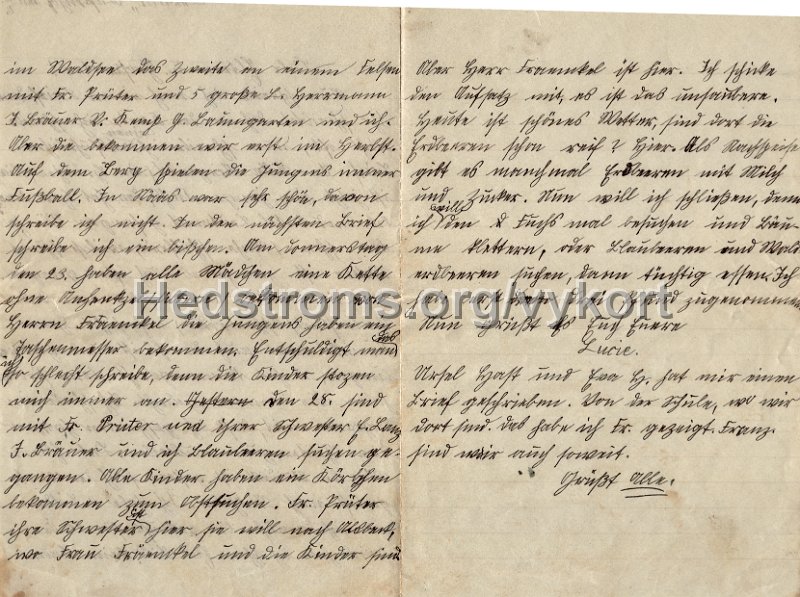 im Waldsee das zweite an einem Felsen
mit Fr. Prüter und 5 große L. Herrmann
I. Bräuer V. Kemp G. Baumgarten und ich.
Aber die bekommen wir erst im Herbst.
Auf dem Berg spielen die Jungens immer
Fußball. In war sehr schön, davon
schreibe ich nicht. In den nächsten Brief
schreibe ich ein bißchen. Am Donnerstag
den 23. haben alle Mädchen eine Kette
ohne bekommen von
Herrn Fraemkel die Jungens haben ein
Taschenmesser bekommen. Entschuldigt das
ich so schlecht schreibe, denn die Kinder stozen
mich immer an. Gestern den 28. sind
mit Fr. Prüter und ihrer Schwester E. Lanz
I. Bräuer und ich Blaubeeren suchen ge-
gangen. Alle Kinder haben ein Körbchen
bekommen zum Obstsuchen. Fr. Prüter
ihre Schwester ist hier sie will nach Ahlbeck,
wo Frau Fräemkel und die Kinder sind
Aber Herr Fraemkel ist hier. Ich schicke
den Aufsatz mit, es ist das unsaubere.
Heute ist schönes Wetter, sind dort die
Erdbeeren schon reif? Hier. Als Nachspeise
gibt es manchmal Erdbeeren mit Milch
und Zucker. Nun will ich schließen, denn
ich will den Fuchs mal besuchen und Bäu-
me klettern, oder Blaubeeren und Wald
erdbeeren suchen, dann tüchtig essen. Ich
zugenommen
Nun Grüßt Es Euch Euere
Lucie.
Ursel Hast und Eva H. hat mir einen
Brief geschrieben. Von der Schule, wo wir
dort sind. Das habe ich Fr. gezeigt. Franz.
sind wir auch soweit.
Grüßt Alle.
Hedstroms.org/vykort